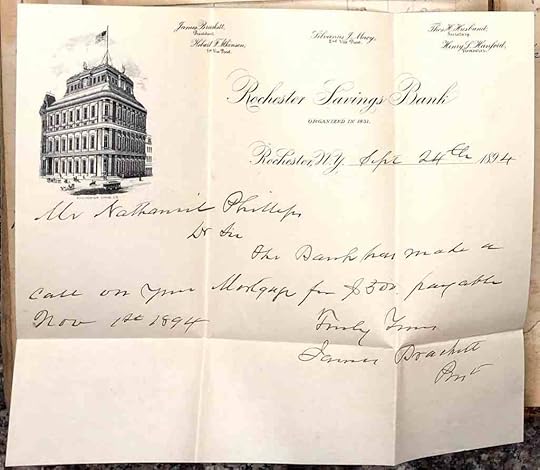 James Brackett,
President.
Robert F. Atkinson,
1st Vice Prest.
Silvanus J. Macy,
2nd Vice Prest.
Thos. H. Husband,
Secretary.
Henry S. Hanford,
Rochester Savings Bank
ORGANIZED IN 1831.
Rochester, N.Y. Sept 24th 1894
Mr Nathaniel Phillips
Dr Sir
The Bank has made a
call on your Mortgage for $300. payable
Nov 1st 1894
Truly Yours
James Brackett
Prst